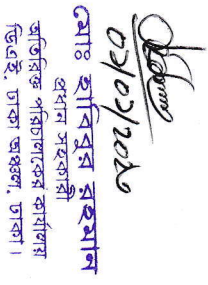 ০১/০১/২০২০
মোঃ হাবিবুর রহমান
প্রধান সহকারী
অতিরিক্ত পরিচালকের কার্যালয়
ডিএই, ঢাকা অঞ্চল, ঢাকা।